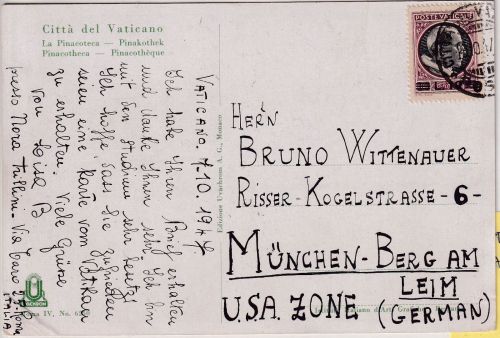 Città del Vaticano
La Pinacoteca — Pinakothek
Pinacotheca — Pinacothèque
POSTE VATICANE
Vaticano, 7-10. 1947
Ich habe Ihren Brief erhalten
und danke Ihnen sehr. Ich bin
mit den Studium sehr besetzt
Ich hoffe, dass Sie zufrieden
seien eine Karte vom Vatikan
zu erhalten. Viele Grüsse
von Luisa B
presso Nora
ITALIA
Edizione Uvachrom A. G., Monaco
UVACHROM
IV, No.
HERN
BRUNO WITTENAUER
RISSER-KOGELSTRASSE -6-
MÜNCHEN-BERG AM
LEIM
U.S.A. ZONE (GERMAN)